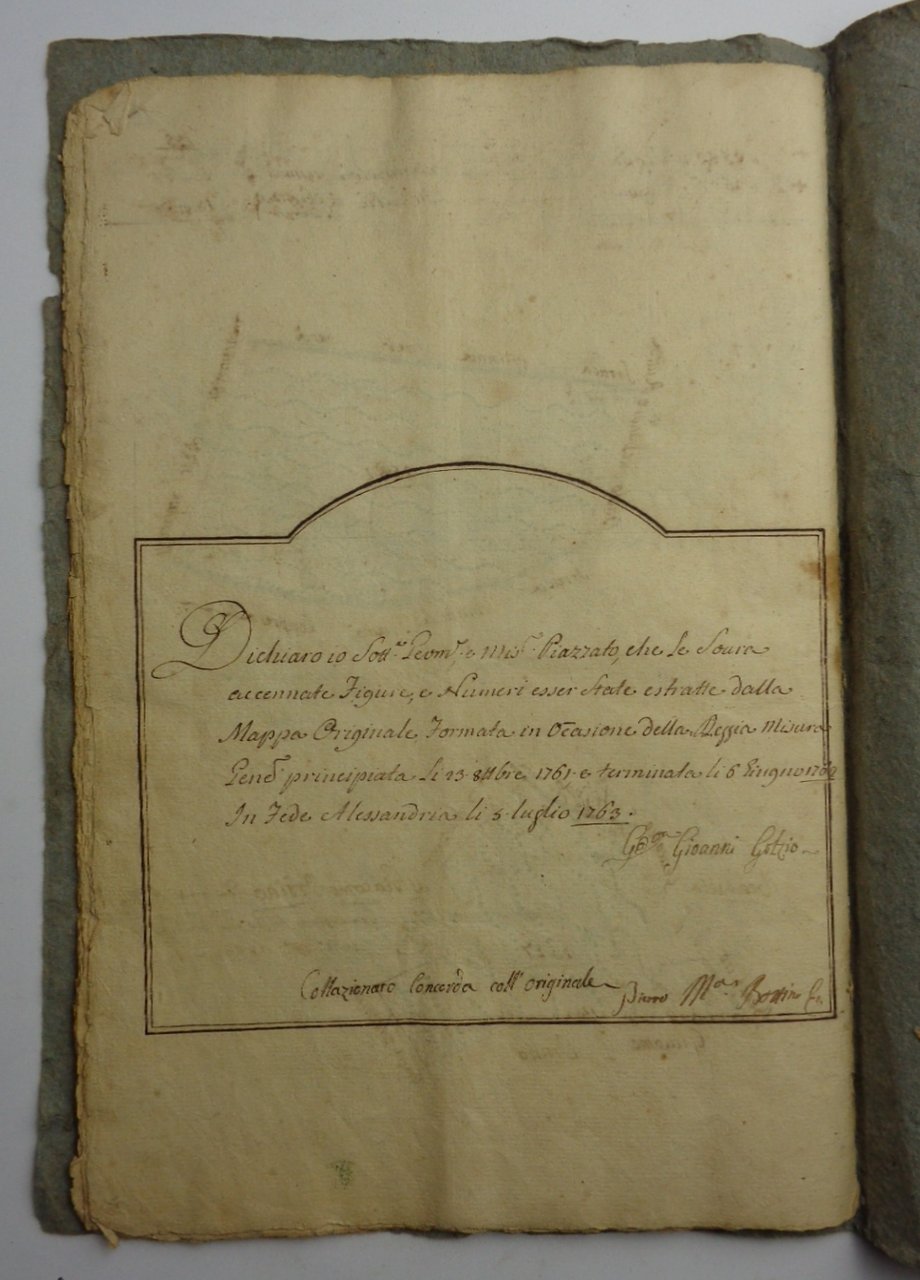 Dichiaro io Sott.º Geom.ª, e Mis.ʳ Piazzato, che Le Soura
accennate Figure, e Numeri esser State estratte dalla
Mappa Originale Formata in Ocasione della Reggia Misura
Gen.ˡᵉ principiata li 23 8ttbre 1761 e terminata li 6 Giugno 1762
In Fede Alessandria li 5 luglio 1763.
Gioanni
Collazionato Concorda coll' originale
Pietro M.ª